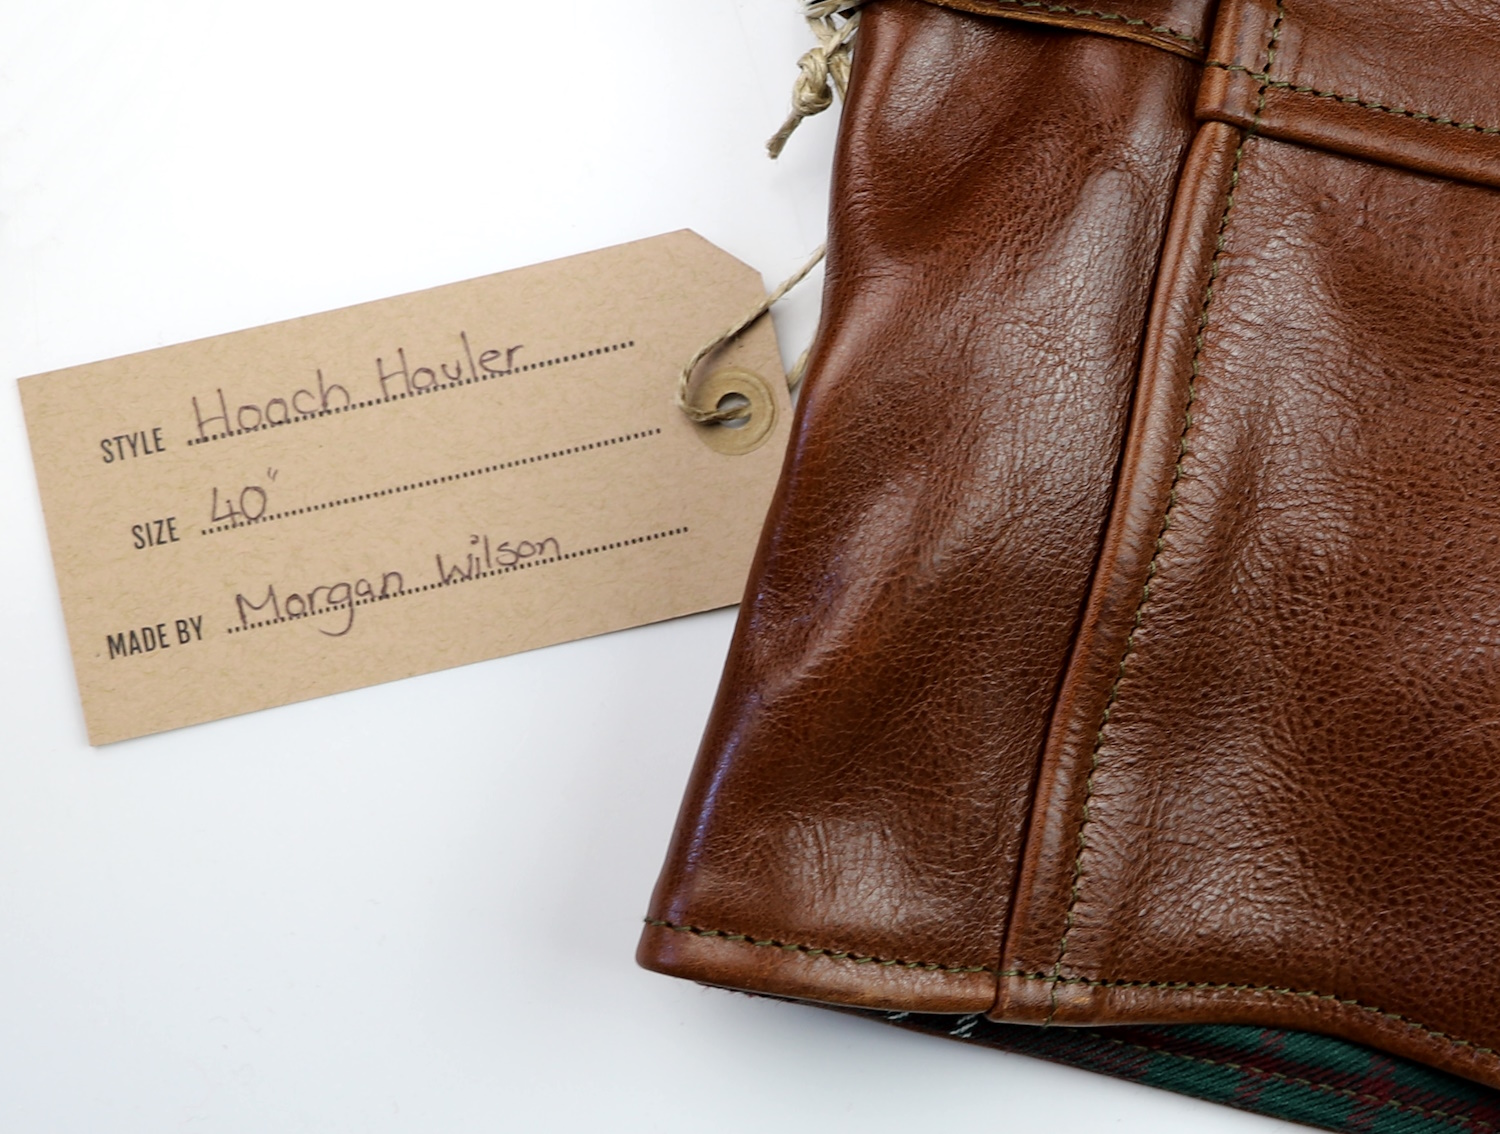 STYLE Hooch Hauler
SIZE 40"
MADE BY Morgan Wilson